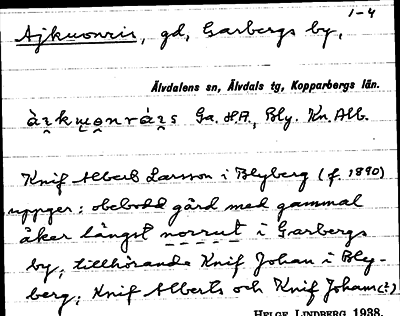 1-4
Ajkwonris, gd, Garbergs by,
Älvdalens sn, Älvdals tg, Kopparbergs län.
Ga. HA., Bly. Kn. Alb.
Knif Alberts Larsson i Blyberg (f. 1890)
uppger: obebodd gård med gammal
åker längst norrut i Garbergs
by, tillhörande Knif Johan i Bly-
berg, Knif Alberts och Knif Johans (?)
HELGE LINDBERG 1938.